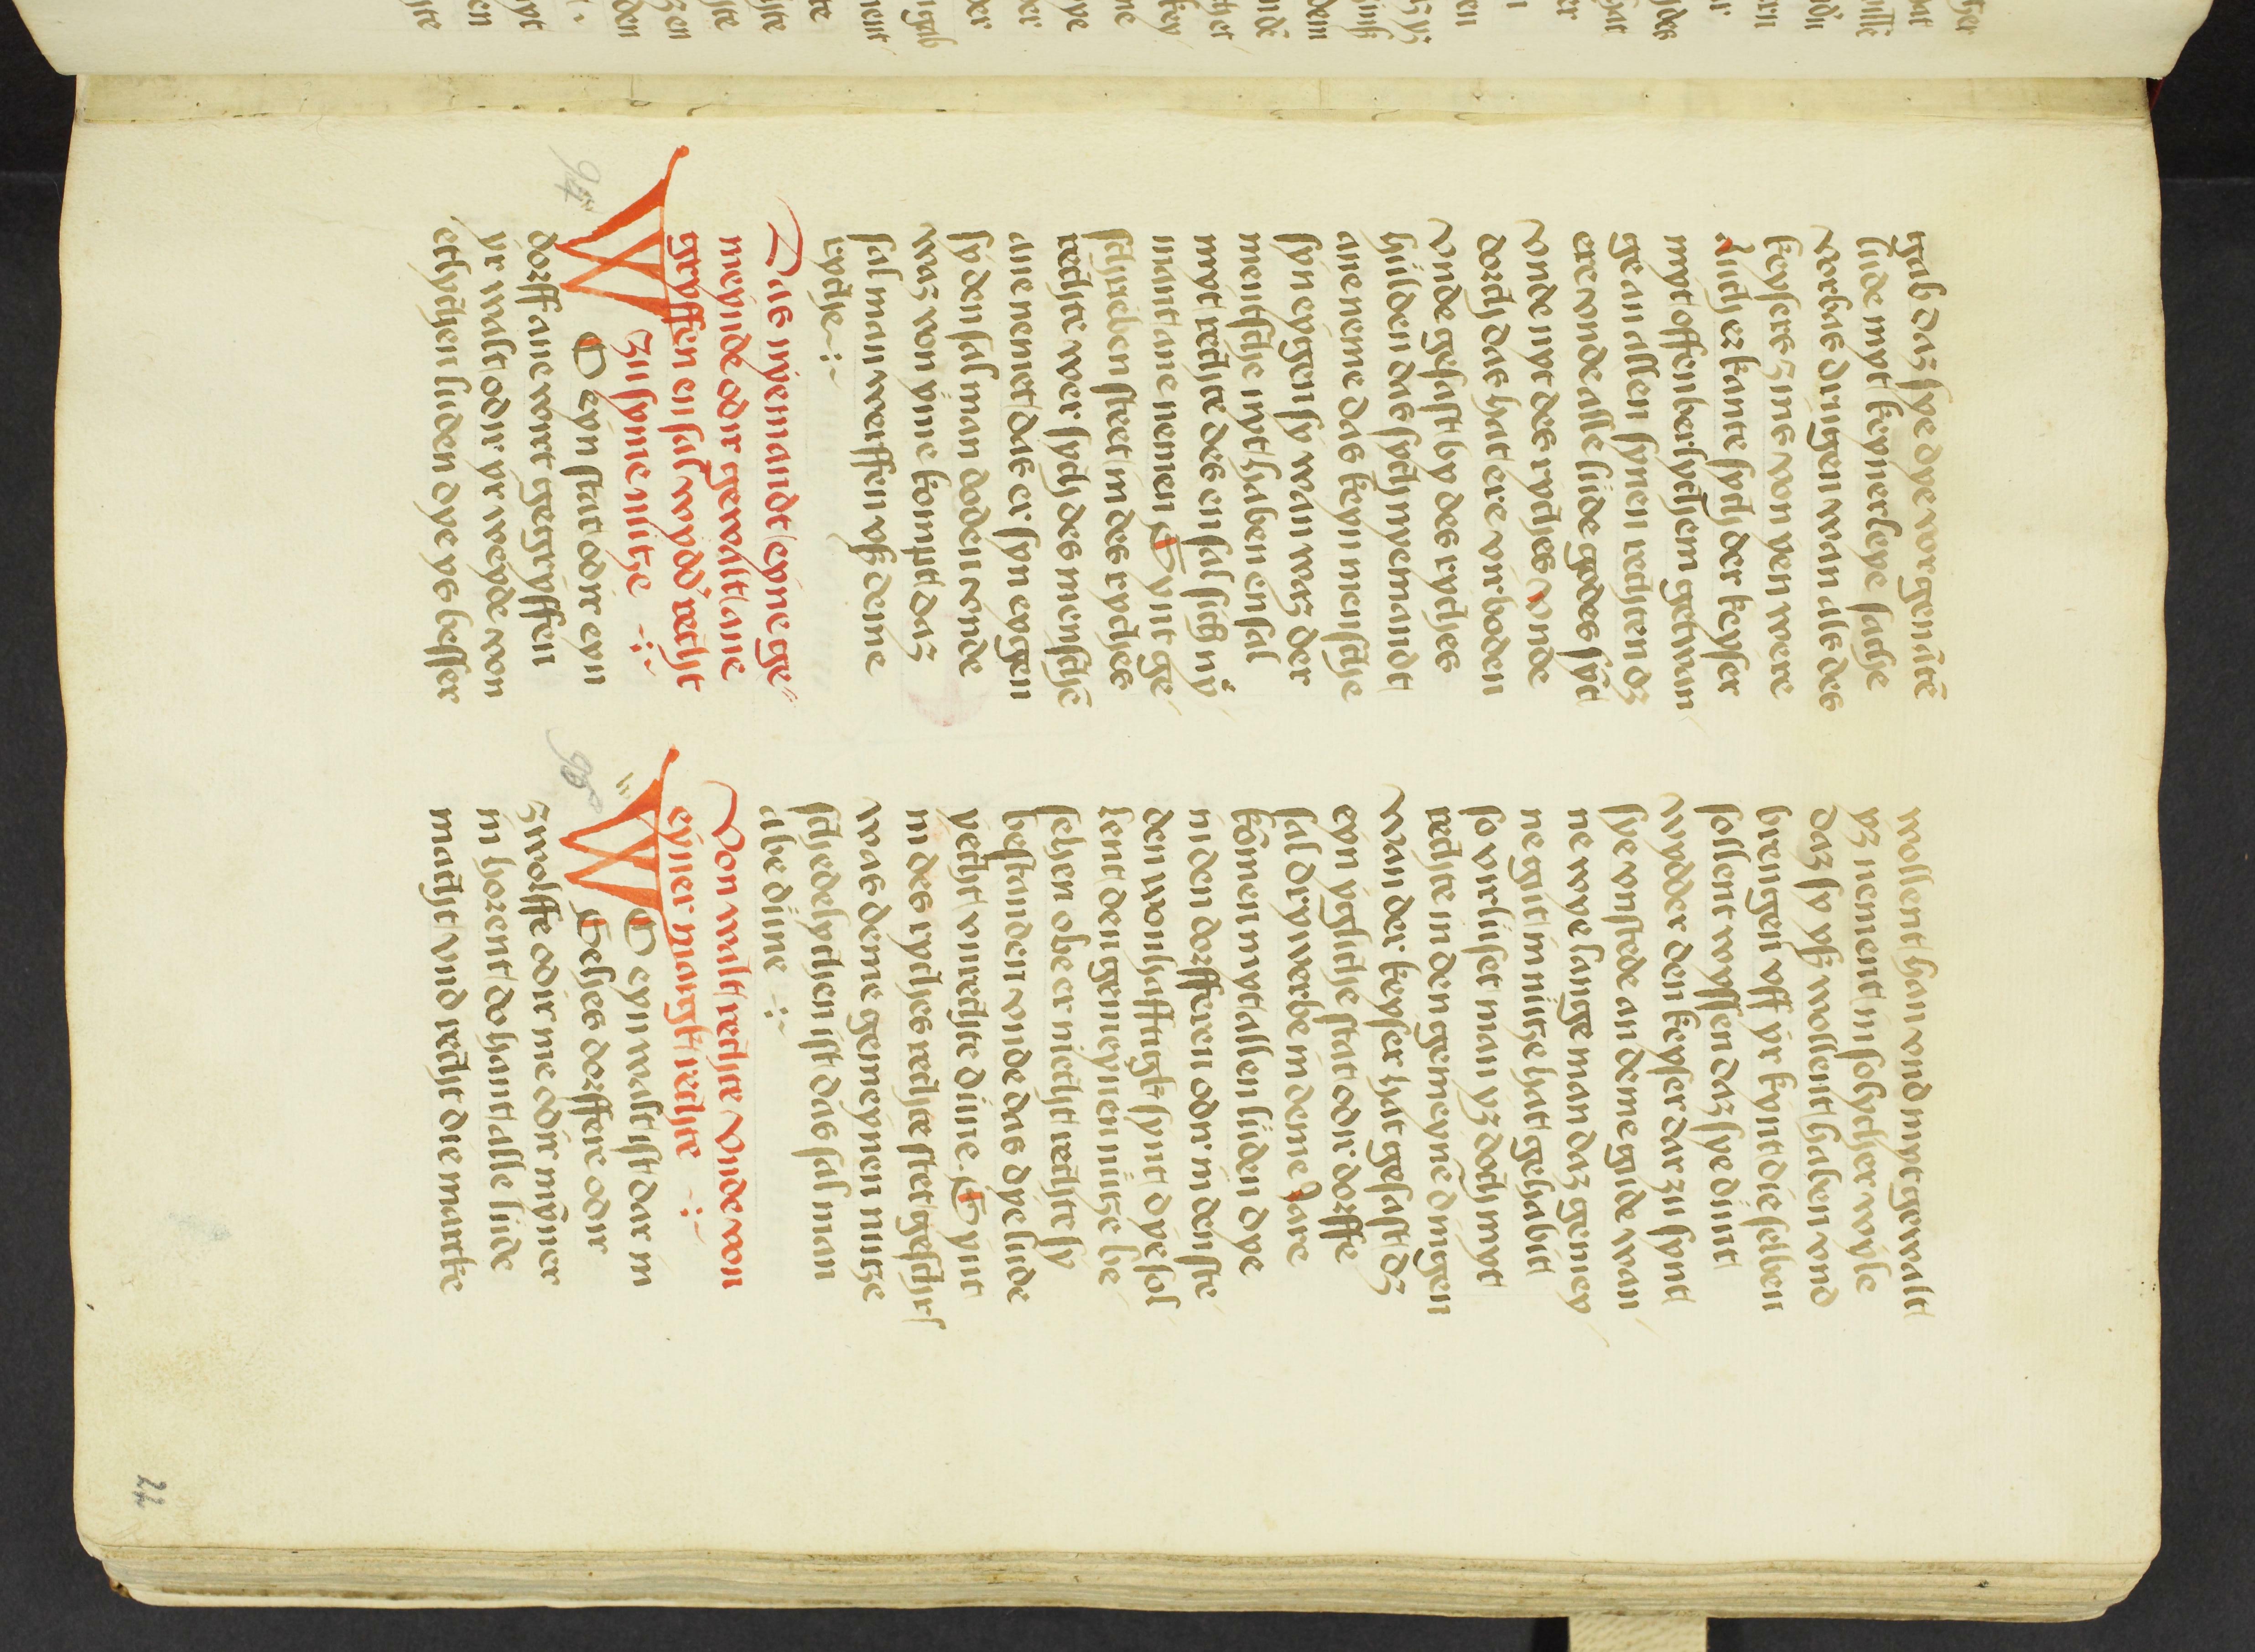 gab daz sye dye vorgenāte
lude myt keyner leye sache
vorbas drugen wan als des
keysers zins von yen were
Auch erkante sych der keyser
myt offenberlychem getwan
ge an allen synen rechten dz
ere vnde alle lüde godes syt
vnde nyt des ryches vnde
doch das hat ere vir boden
vnde gesast by des ryches
hülden das sych nyemandt
aneneme das keyn mensche
syn eygen sy wan waz der
mensche myt haben en sal
myt rechte des en sal sich ny
mant ane nemen Synt ge
schreben stet in des ryches
rechte wer sych des mensche
ane nemet das er syn eygen
sy den sal man doden vnde
waz von yme kompt daz
sal man werffen vß deme
ryche
Das nyemandt eyne ge
meynde odir gewalt ane
gryffen en sal wydd' recht
zu syme nutze
94
WO eyn stat odir eyn
dorff ane wirt gegryffen
yr walt odir yr weyde von
etlychen luden dye ys besser
wollent han vnd myt gewalt
yz nement in solycher wyse
daz sy yß wollent haben vnd
brengen vff yr kynt die selben
sollent wyssen daz sye dünt
wydder den keyser dar zu synt
sye vnstede an deme gude wan
ne wye lange man daz gemey
ne gut in nütze hat gehabit
so virlüset man yz doch myt
rechte in den gemeynē dingen
wan der keyser hat gesast dz
eyn ygliche stat odir dorffe
sal dry werbe in deme Jare
komen myt allen lüden dye
in den dorfferen odir in den ste
den wonhafftigk synt dye sol
lent den gemeynen nütze be
sehen obe er nicht rechte sy
bestanden vnde das dye lude
yecht vnrechte düne Synt
in des ryches rechte stet geschr
was deme gemeynen nutze
schedelychen ist das sal man
abe düne
Von walt rechte vnde von
eyner margk rechte
95
WO eyn walt ist dar in
Sehes dorffere odir
zwolffe odir me odir myner
in horent do hant alle lüde
macht vnd recht die marke
22